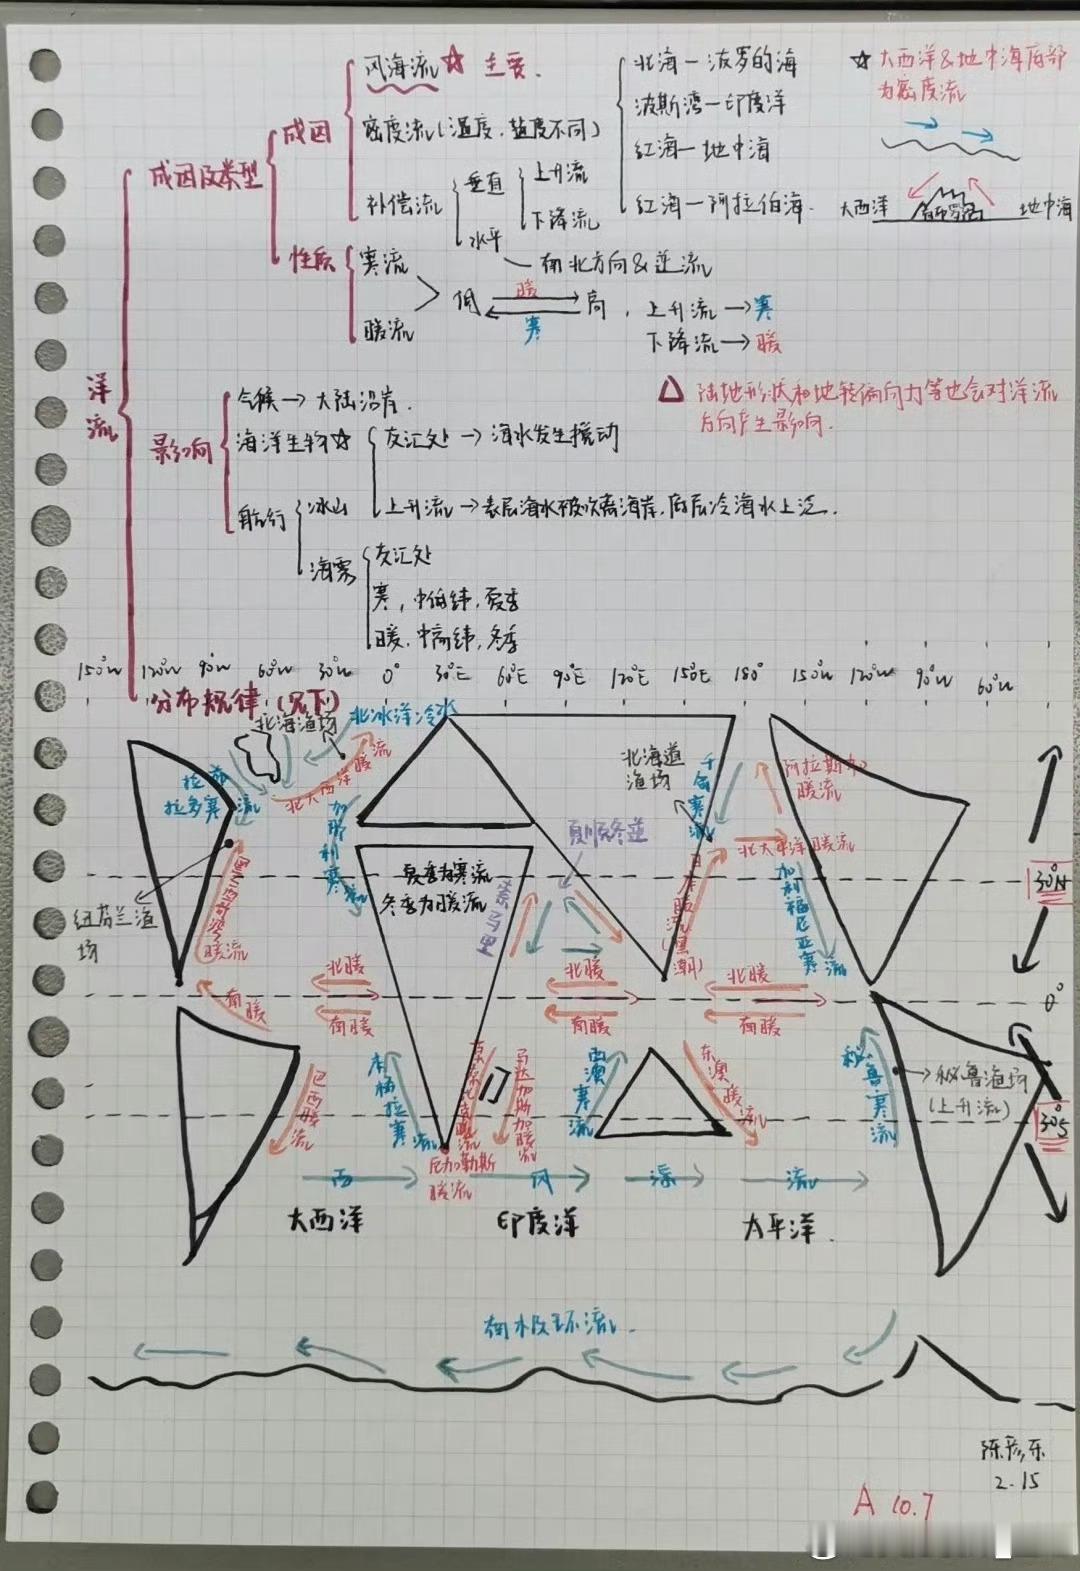 洋流
成因及类型
成因
风海流☆ 主要.
密度流(温度.盐度不同)
北海-波罗的海
波斯湾-印度洋
红海-地中海
红海-阿拉伯海.
补偿流
垂直
上升流
下降流
水平
南北方向&逆流
☆大西洋&地中海底部
为密度流
大西洋
地中海
性质
寒流
暖流
低
暖
寒
高
上升流→寒
下降流→暖
△陆地形状和地转偏向力等也会对洋流
方向产生影响.
影响
气候→大陆沿岸.
海洋生物☆
交汇处→海水发生搅动
上升流→表层海水被吹离海岸,底层冷海水上泛.
航行
冰山
海雾
交汇处
寒,中低纬,夏季
暖,中高纬,冬季
分布规律(见下)
150°W 120°W 90°W 60°W 30°W 0° 30°E 60°E 90°E 120°E 150°E 180° 150°W 120°W 90°W 60°W
北海渔场
北冰洋冷水
拉布拉多寒流
北大西洋暖流
加那利寒流
墨西哥湾暖流
纽芬兰渔场
北海道渔场
千岛寒流
阿拉斯加暖流
北太平洋暖流
日本暖流(黑潮)
加利福尼亚寒流
夏顺冬逆
夏季为寒流
冬季为暖流
索马里
30°N
北暖
北暖
北暖
0°
南暖
南暖
南暖
南暖
巴西暖流
本格拉寒流
马达加斯加暖流
西澳寒流
东澳暖流
秘鲁寒流
秘鲁渔场
(上升流)
30°S
厄加勒斯暖流
西 风 漂 流
大西洋 印度洋 太平洋.
南极环流.
陈彦乐
2.15
A 10.7